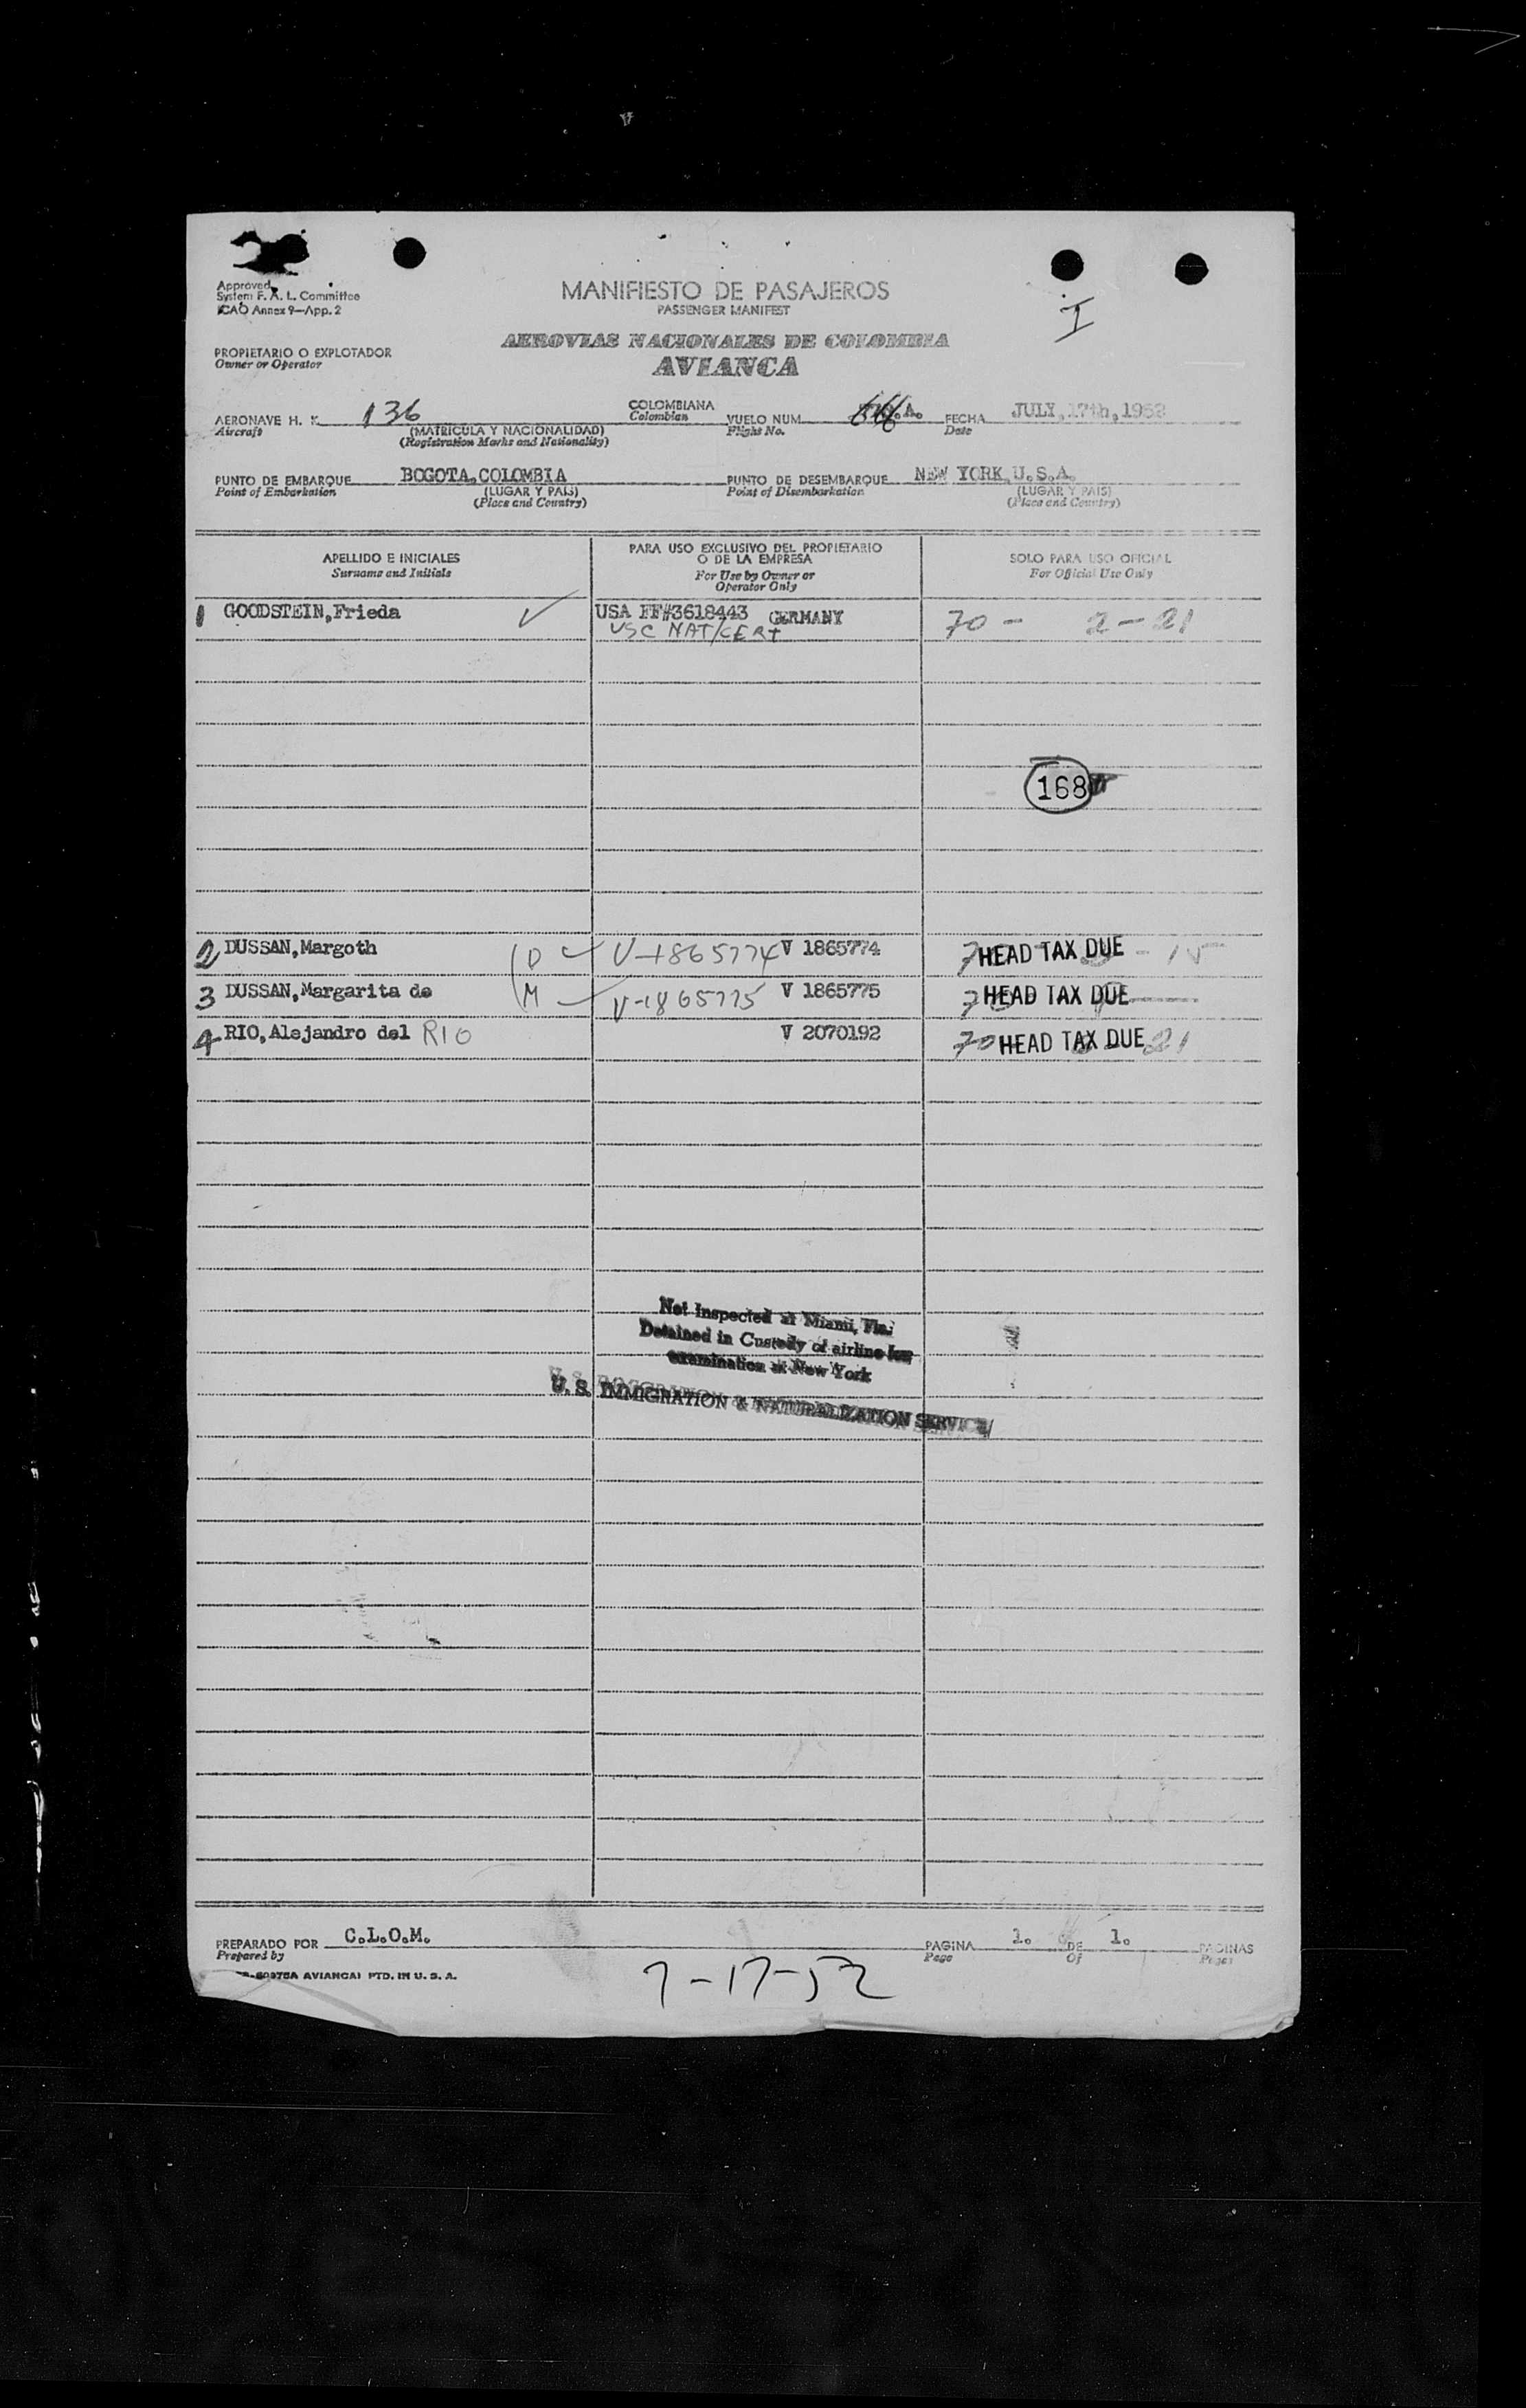 Approved
System F. A. L. Committee
ICAO Annex 9—App. 2
MANIFIESTO DE PASAJEROS
PASSENGER MANIFEST
I
AEROVIAS NACIONALES DE COLOMBIA
AVIANCA
PROPIETARIO O EXPLOTADOR
Owner or Operator
AERONAVE H. K. 136 COLOMBIANA VUELO NUM. FECHA JULY, 17th, 1952
Aircraft (MATRICULA Y NACIONALIDAD) Colombian Flight No. Date
(Registration Marks and Nationality)
PUNTO DE EMBARQUE BOGOTA, COLOMBIA PUNTO DE DESEMBARQUE NEW YORK, U.S.A.
Point of Embarkation (LUGAR Y PAIS) Point of Disembarkation (LUGAR Y PAIS)
(Place and Country) (Place and Country)
APELLIDO E INICIALES
Surname and Initials
PARA USO EXCLUSIVO DEL PROPIETARIO
O DE LA EMPRESA
For Use by Owner or
Operator Only
SOLO PARA USO OFICIAL
For Official Use Only
1 GOODSTEIN,Frieda USA FF#3618443 GERMANY 70 - 2-21
USC NAT/CERT
168
2 DUSSAN,Margoth D V-1865774 V 1865774 HEAD TAX DUE - 15
3 DUSSAN,Margarita de M V-1865775 V 1865775 HEAD TAX DUE
4 RIO,Alejandro del RIO V 2070192 70 HEAD TAX DUE 21
Not Inspected at Miami, Fla.
Detained in Custody of airline for
examination at New York
U. S. IMMIGRATION & NATURALIZATION SERVICE
PREPARADO POR C.L.O.M. PAGINA 1. DE 1. PAGINAS
Prepared by Page Of Pages
AVIANCA) PTD. IN U. S. A.
7-17-52